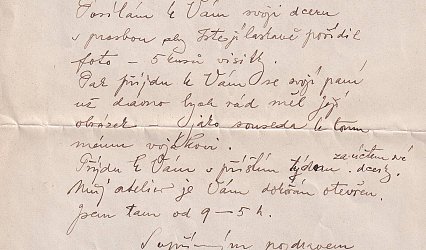 Posílám k Vám svoji dceru
s prosbou aby jste jí laskavě pořídil
foto – 5 kusů visitky.
Pak přijdu k Vám se svojí paní
už dávno bych rád měl její
obrázek – jako souseda k tomu
mému vojákovi.
Přijdu k Vám v příštím týdnu. za účelem
Můj atelier je Vám dokořán otevřen.
Jsem tam od 9–5 h.
S upřímným pozdravem